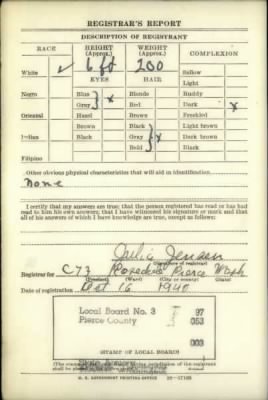 REGISTRAR'S REPORT
DESCRIPTION OF REGISTRANT
RACE HEIGHT (Approx.) WEIGHT (Approx.) COMPLEXION
White ✓ 6 ft 200 Sallow
EYES HAIR Light
Negro Blue Blonde Ruddy
Gray } x Red Dark x
Oriental Hazel Brown Freckled
Brown Black Light brown
Indian Black Gray } x Dark brown
Bald Black
Filipino
Other obvious physical characteristics that will aid in identification
None
I certify that my answers are true; that the person registered has read or has had
read to him his own answers; that I have witnessed his signature or mark and that
all of his answers of which I have knowledge are true, except as follows:
Julia Jensen
(Signature of registrar)
Registrar for C73 Rosedale Pierce Wash
(Precinct) (Ward) (City or county) (State)
Date of registration Oct 16 1940
Local Board No. 3 97
Pierce County 053
003
(STAMP OF LOCAL BOARD)
U. S. GOVERNMENT PRINTING OFFICE